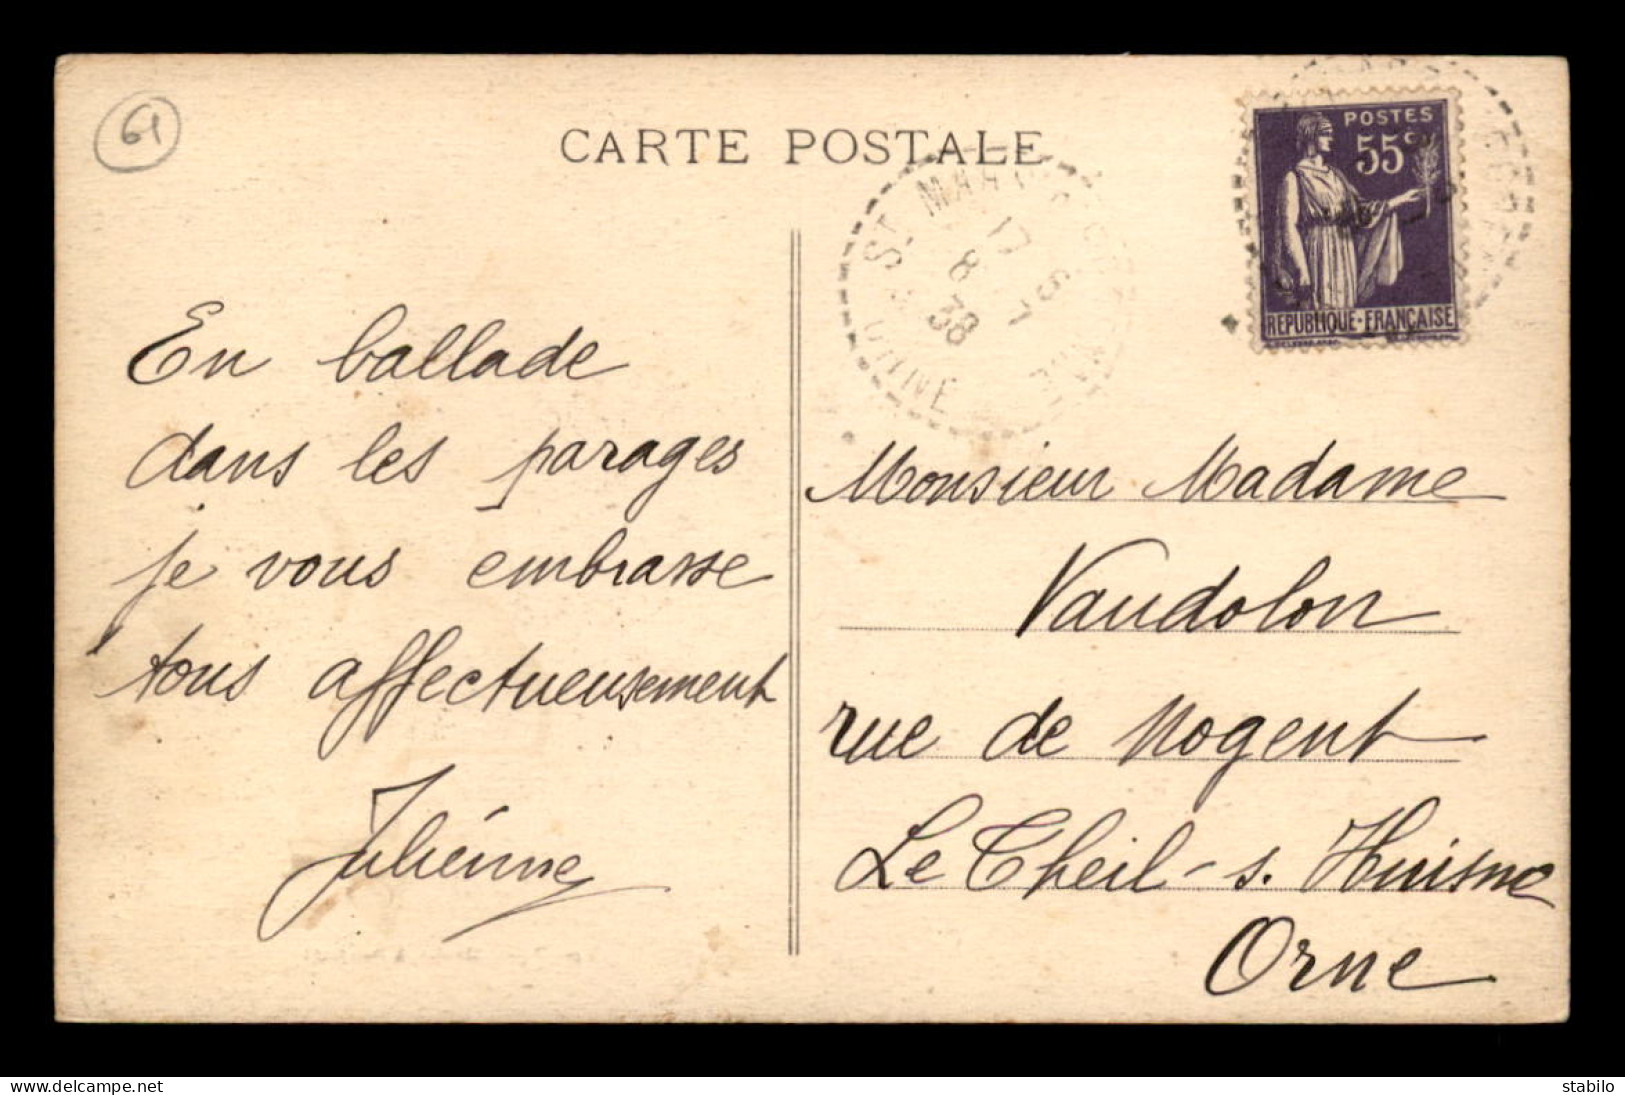 61
CARTE POSTALE
POSTES
55c
REPUBLIQUE-FRANÇAISE
ST MARD
17
8
38
ORNE
En ballade
dans les parages
je vous embrasse
tous affectueusement
Juliénne
Monsieur Madame
Vaudolon
rue de Nogent
Le Theil-s. Huisne
Orne
delcampe.net
stabilo